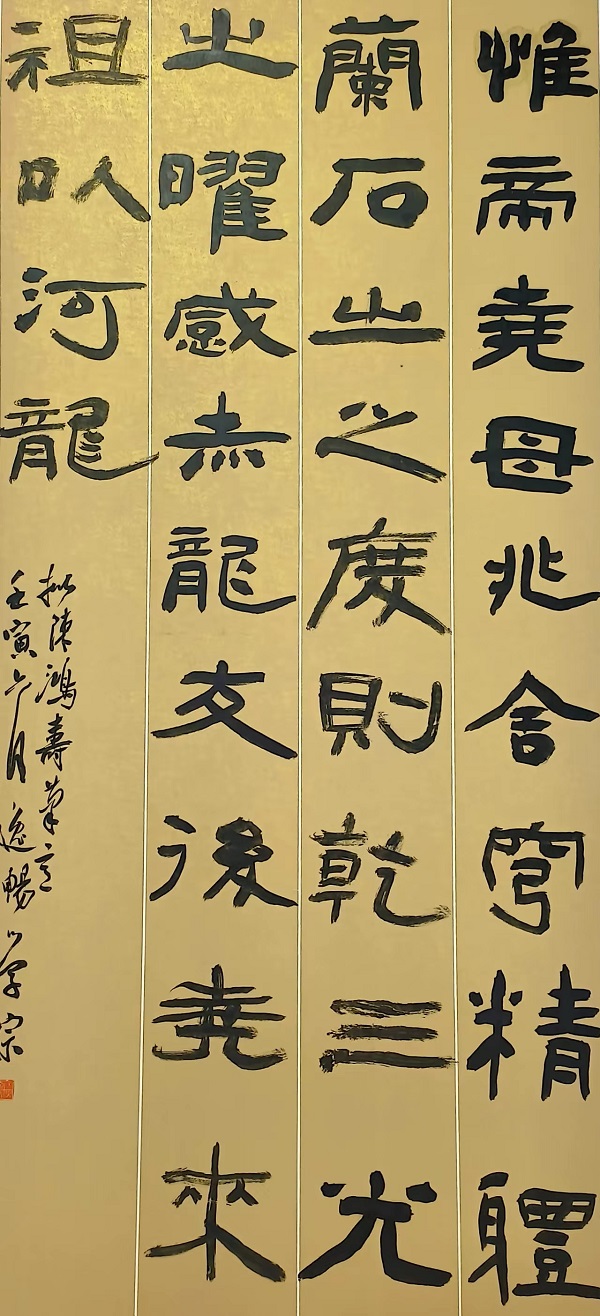 惟帝堯母兆舍穹精軆
蘭石之之度則乾三光
之曜感赤龍交後堯來
祖以河龍
拟陳鴻壽筆意
壬寅六月逸暢